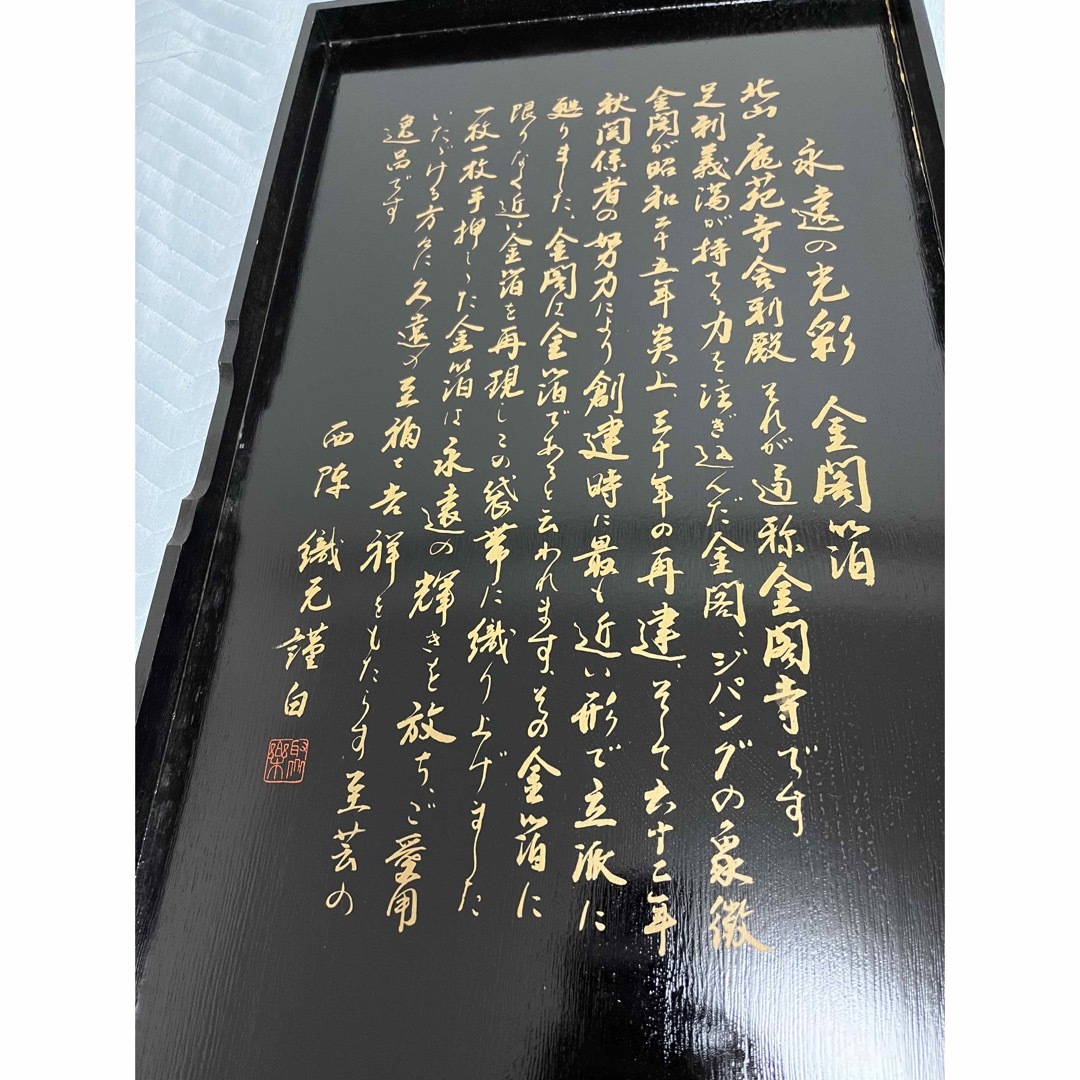 永遠の光彩 金閣箔
北山 鹿苑寺舎利殿 それが通称金閣寺です
足利義満が持てる力を注ぎ込んだ金閣、ジパングの象徴
金閣が昭和二十五年炎上、三十年の再建、そして六十二年
秋関係者の努力により創建時に最も近い形で立派に
甦りました、金閣は金箔であると云われます、その金箔に
限りなく近い金箔を再現しこの袋帯に織り上げました
一枚一枚手押しした金箔は永遠の輝きを放ち、ご愛用
いただける方々に久遠の至福と吉祥をもたらす至芸の
逸品です
西陣 織元謹白